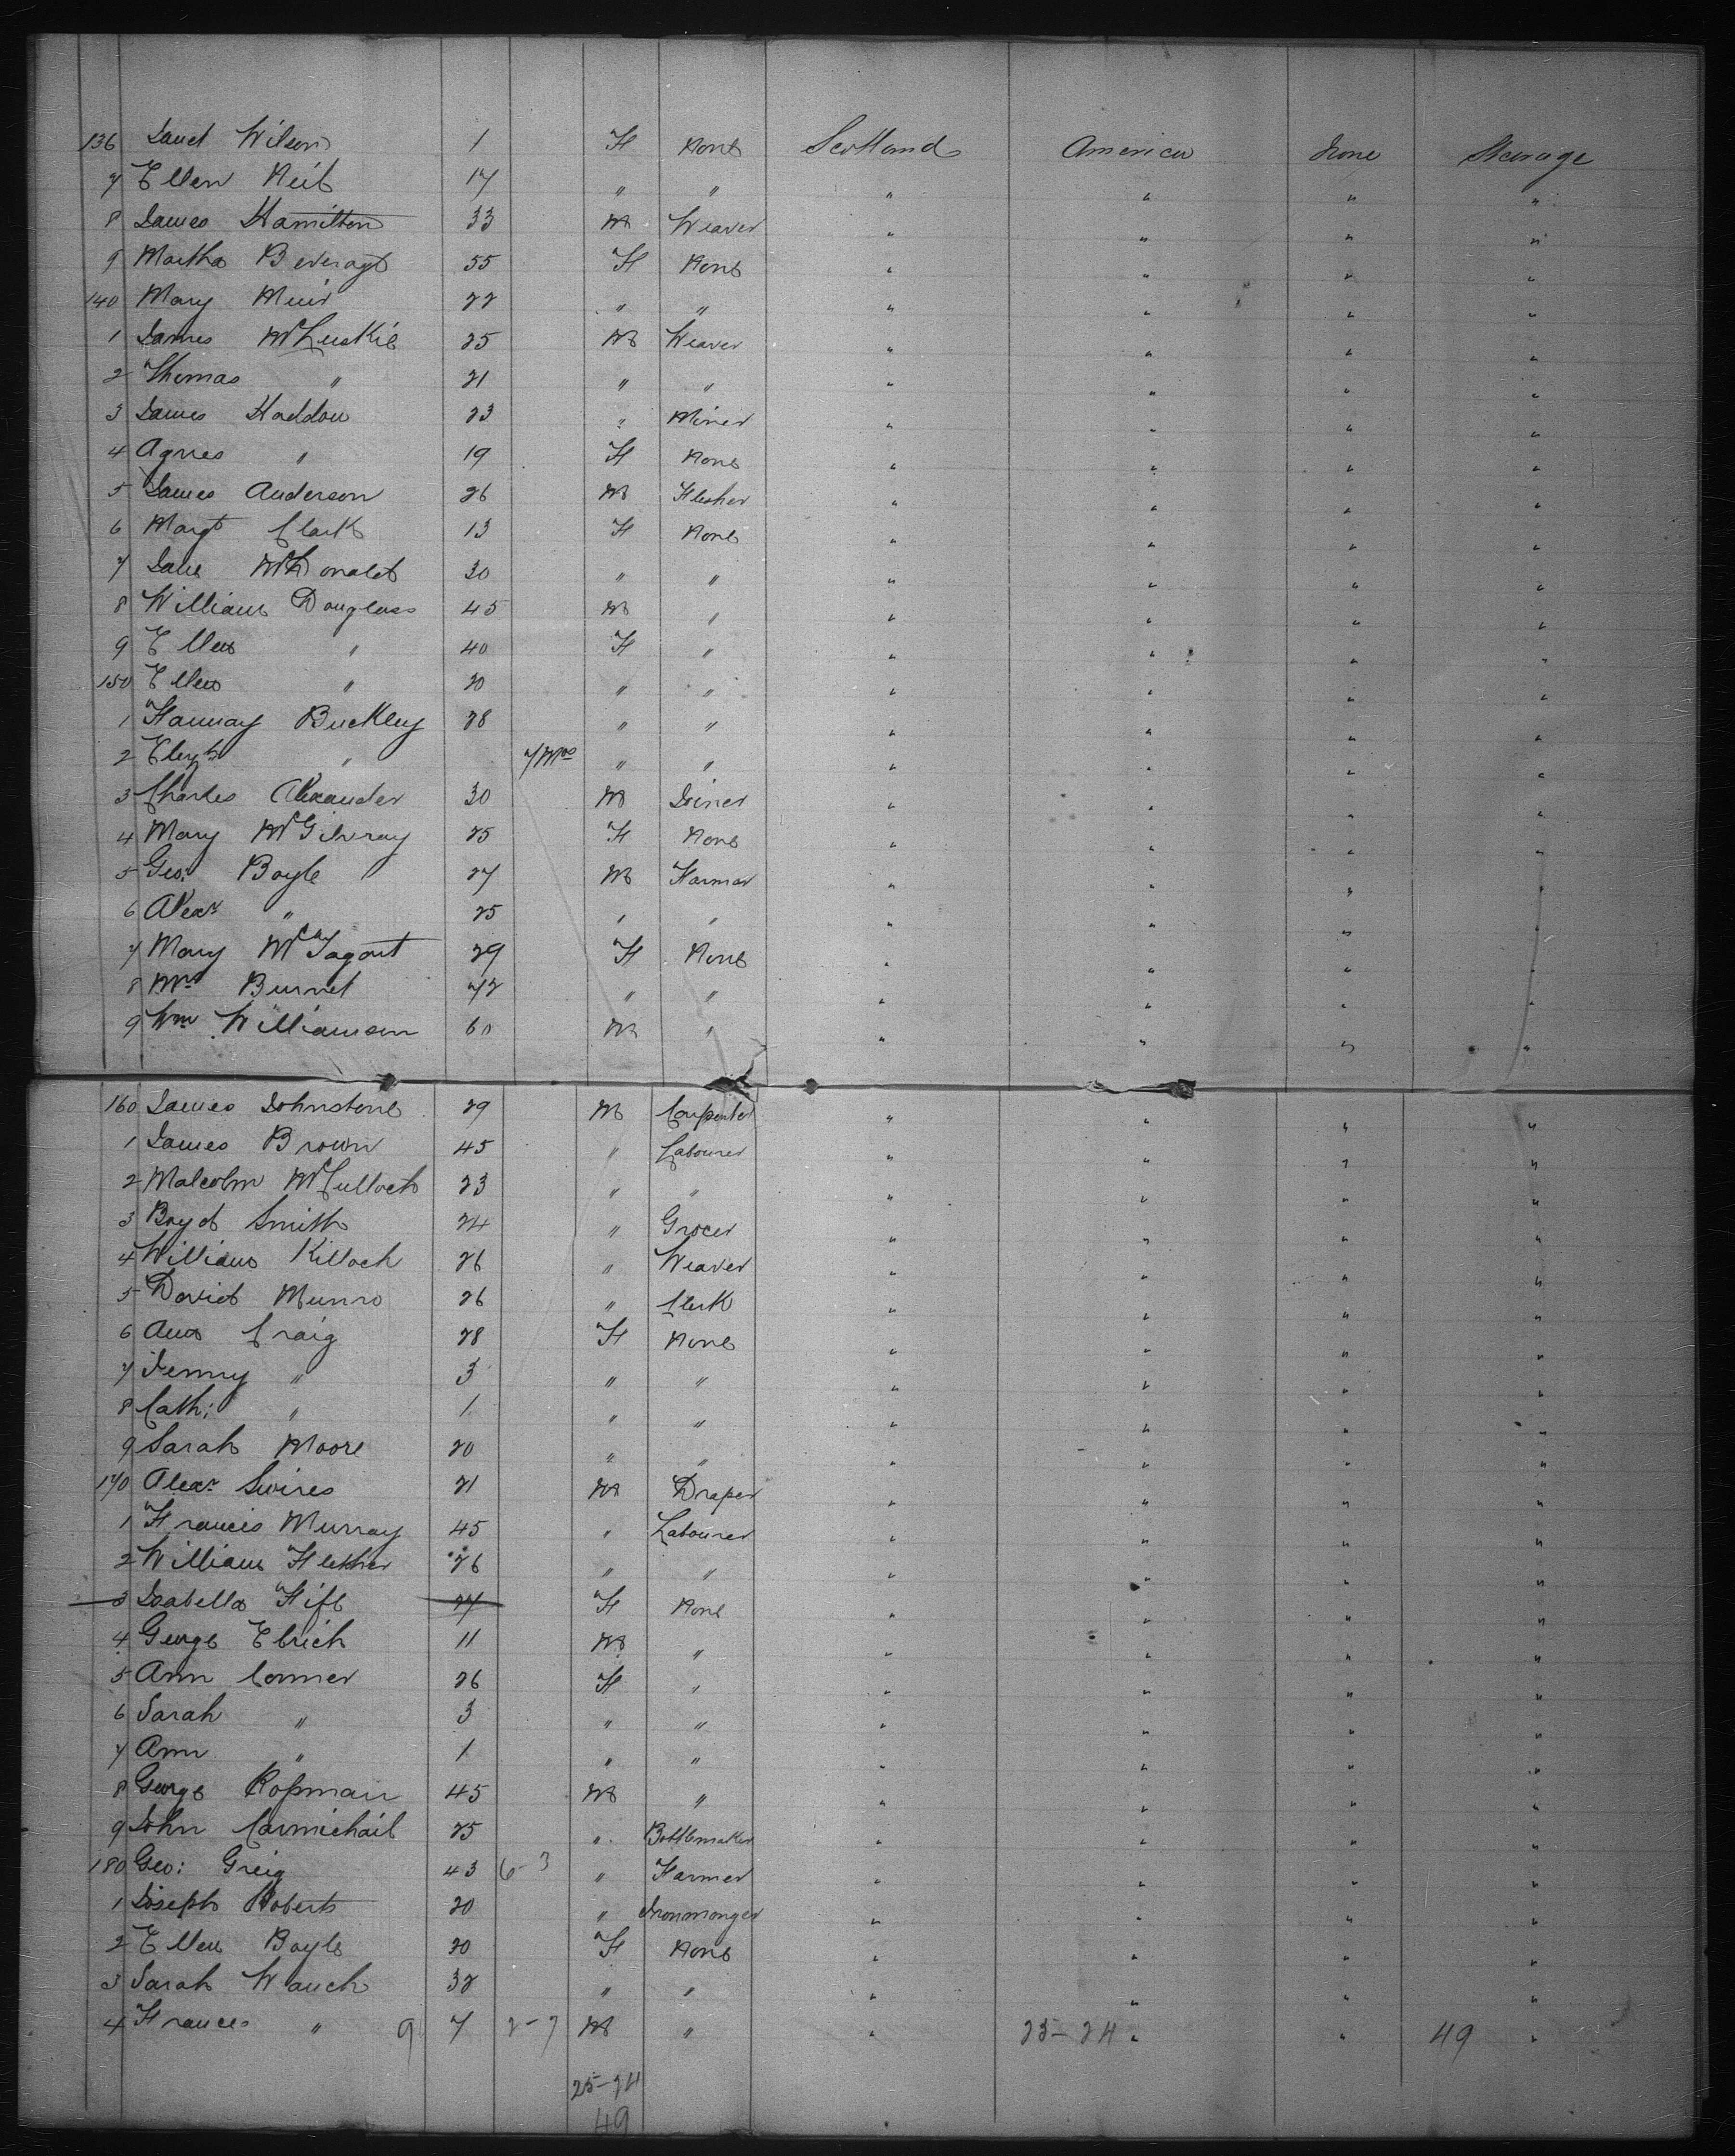 136 Janet Wilson 1 F None Scotland America None Steerage
7 Ellen Neil 17 " " " " " "
8 James Hamilton 33 M Weaver " " " "
9 Martha Beverage 55 F None " " " "
140 Mary Muir 22 " " " " " "
1 James McLuskie 25 M Weaver " " " "
2 Thomas " 21 " " " " " "
3 James Haddow 23 " Miner " " " "
4 Agnes " 19 F None " " " "
5 James Anderson 26 M Flesher " " " "
6 Margt Clark 13 F None " " " "
7 Jane McDonald 30 " " " " " "
8 William Douglass 45 M " " " " "
9 Ellen " 40 F " " " " "
150 Ellen " 20 " " " " " "
1 Hannay Buckley 28 " " " " " "
2 Elizth " 7 Mos " " " " " "
3 Charles Alexander 30 M Joiner " " " "
4 Mary McGilvray 25 F None " " " "
5 Geo: Boyle 27 M Farmer " " " "
6 Alexr " 25 " " " " " "
7 Mary McTagart 29 F None " " " "
8 Mrs Burnet 72 " " " " " "
9 Wm Williamson 60 M " " " " "
160 James Johnstone 29 M Carpenter " " " "
1 James Brown 45 " Labourer " " " "
2 Malcolm McCulloch 23 " " " " " "
3 Boyd Smith 24 " Grocer " " " "
4 William Killoch 26 " Weaver " " " "
5 David Munro 26 " Clerk " " " "
6 Ann Craig 28 F None " " " "
7 Jenny " 3 " " " " " "
8 Cath: " 1 " " " " " "
9 Sarah Moore 20 " " " " " "
170 Alexr Swires 21 M Draper " " " "
1 Francis Murray 45 " Labourer " " " "
2 William Fletcher 26 " " " " " "
3 Isabella Fife 27 F None " " " "
4 George Ebrich 11 M " " " " "
5 Ann Conner 26 F " " " " "
6 Sarah " 3 " " " " " "
7 Ann " 1 " " " " " "
8 George Rossman 45 M " " " " "
9 John Carmichail 25 " Bottlemaker " " " "
180 Geo: Greig 43 6-3 " Farmer " " " "
1 Joseph Roberts 20 " Ironmonger " " " "
2 Ellen Boyle 20 F None " " " "
3 Sarah Wauch 32 " " " " " "
4 Frances " 9 7 2-7 M " " 25-24 " " 49 "
25-24
49